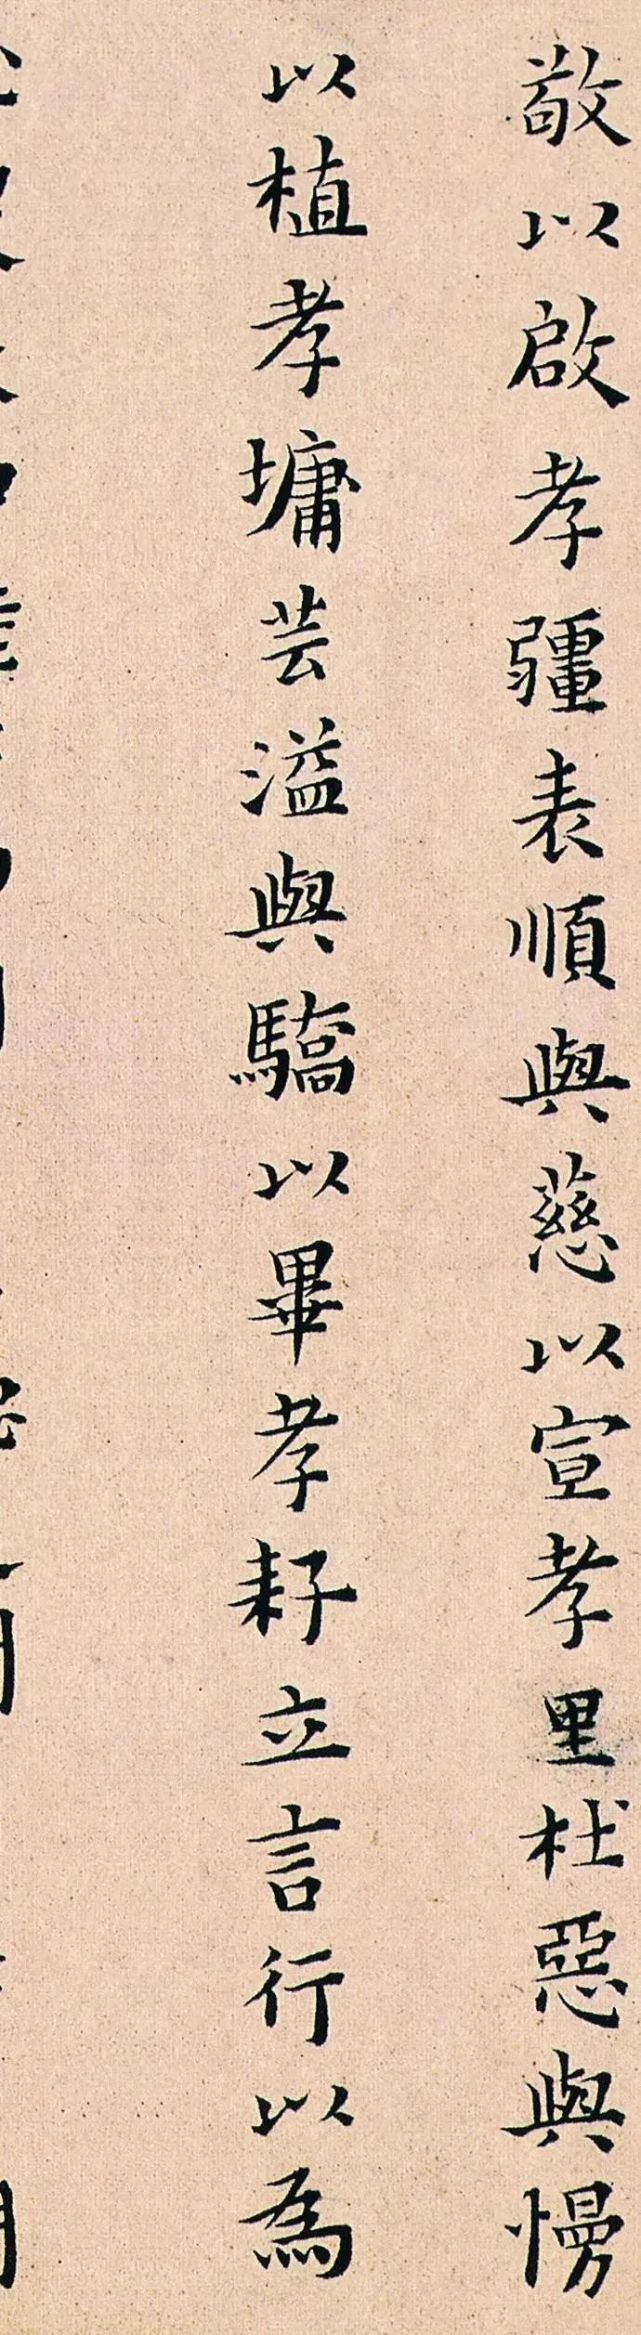 敬以啟孝疆表順與慈以宣孝里杜惡與慢
以植孝墉芸溢與驕以畢孝耔立言行以為